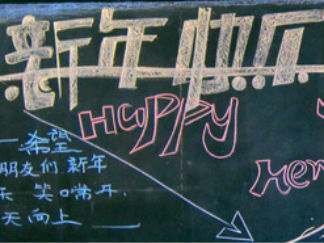 新年快乐
Happy
一希望
朋友们新年
乐 笑口常开
天向上